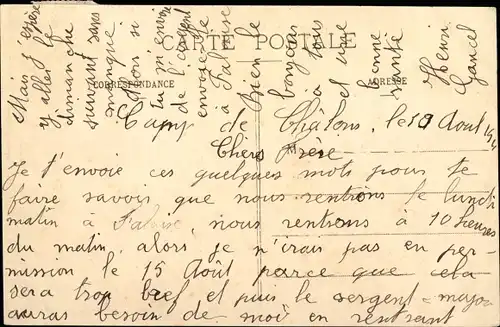 CARTE POSTALE
CORRESPONDANCE
ADRESSE
Camp de Châlons, le 10 Août
Chers Frère
Je t'envoie ces quelques mots pour te
faire savoir que nous rentrons le lundi
matin à Falaise, nous rentrons à 10 heures
du matin, alors je n'irais pas en per-
mission le 15 Août parce que cela
sera trop bref et puis le sergent-major
auras besoin de moi en rentrant
Mais j'espère
y aller le
dimanche
suivant sans
manque
Alors si
tu m'envoie
de l'argent
envoie le
à Falaise
Bien le
bonjour
à tous
et une
bonne
santé
Henri